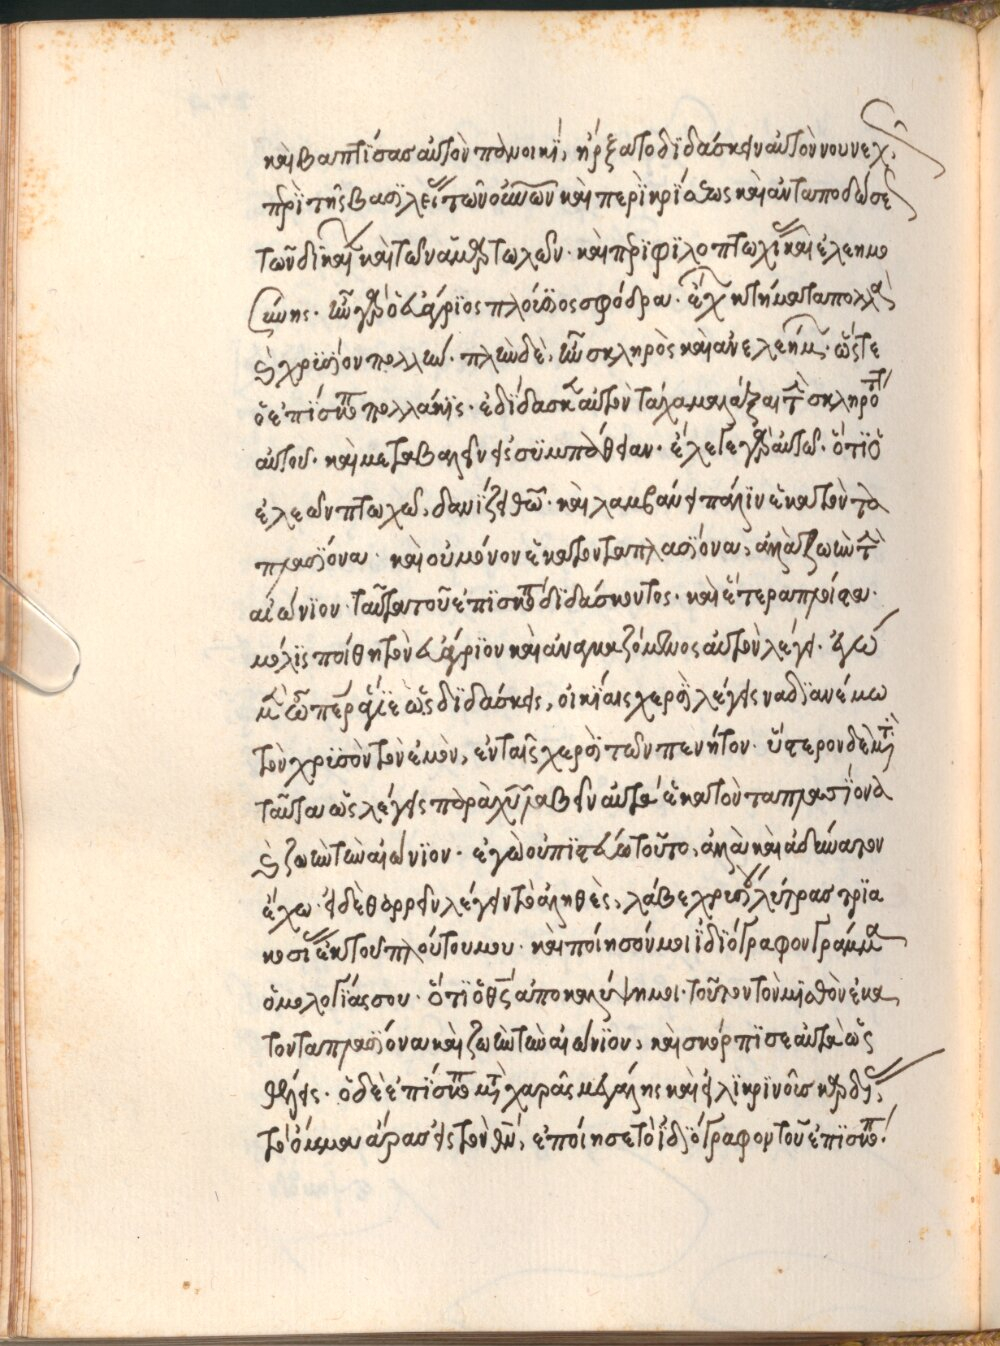 καὶ βαπτίσας αὐτὸν πανοικὶ, ἤρξατο διδάσκειν αὐτὸν νουνεχ
πρὶ τῆς βασιλεί τῶν οὐνῶν καὶ περὶ κρίσεως καὶ ἀνταποδώσε
τῶν δικαί καὶ τῶν ἁμαρτωλῶν· καὶ πρὶ φιλοπτωχί καὶ ἐλεημο
σύνης· ἦν γὰρ ὁ πλούσιος σφόδρα· ἔχ κτήματα πολλὰ
καὶ χρυσίον πολλύν· πλὴν δὲ, ἦν σκληρὸς καὶ ἀνελεήμ· ὥστε
ὁ ἐπίσκοπ πολλάκις· ἐδίδασκ αὐτὸν τὰ χαμαιλάζαι τ σκληρό
αὐτοῦ· καὶ μεταβαλεῖν εἰς συμπάθειαν· ἔλεγε γὰρ αὐτῶ· ὅτι ὁ
ἐλεῶν πτωχῶ, δανίζει θῶ· καὶ λαμβάνει πάλιν ἑκατοντα
πλασίονα· καὶ οὐ μόνον ἑκατονταπλασίονα, ἀλλὰ ζωὴν τ
αἰώνιον· ταῦτα τοῦ ἐπισκόπ διδάσκοντος· καὶ ἕτερα πλείστα·
μόλις ποίθη τὸν καὶ ἀναγκαζόμενος αὐτὸν λέγει· ἐγώ
μ ὦ περ ὡς διδάσκεις, οἰκίαις χερσὶ λέγεις να διανέμω
τὸν χρισὸν τὸν ἐμὸν, ἐν ταῖς χερσὶ τῶν πενήτον· ὕστερον δὲ μετ
ταῦτα ὡς λέγεις παρὰ χυ λαβεῖν αὐτὰ ἑκατονταπλασίονα
καὶ ζωὴν τὴν αἰώνιον· ἐγὼ οὐ πιστεύω τοῦτο, ἀλλὰ καὶ ἀδύνατον
ἔχω· εἰ δὲ θορρεῖν λέγειν τὸ ἀληθὲς, λάβε χρυσί λίτρας τρια
κοσί ἐκ τοῦ πλούτου μου· καὶ ποίησόν μοι ἰδιόγραφον γράμμα
ὁμολογίας σου· ὅτι ὁ θς ἀποκαλύψη μοι· τοῦτον τὸν μισθὸν ἑκα
τονταπλασίονα καὶ ζωὴν τὴν αἰώνιον, καὶ σκόρπισε αὐτὰ ὡς
θέλεις· ὁ δὲ ἐπίσκοπ μετὰ χαρᾶς μεγάλης καὶ εἰλικρινοῖς καρδί,
τὸ ὄμμα ἄρας εἰς τὸν θν, ἐποίησε τὸ ἰδιόγραφον τοῦ ἐπισκόπ·